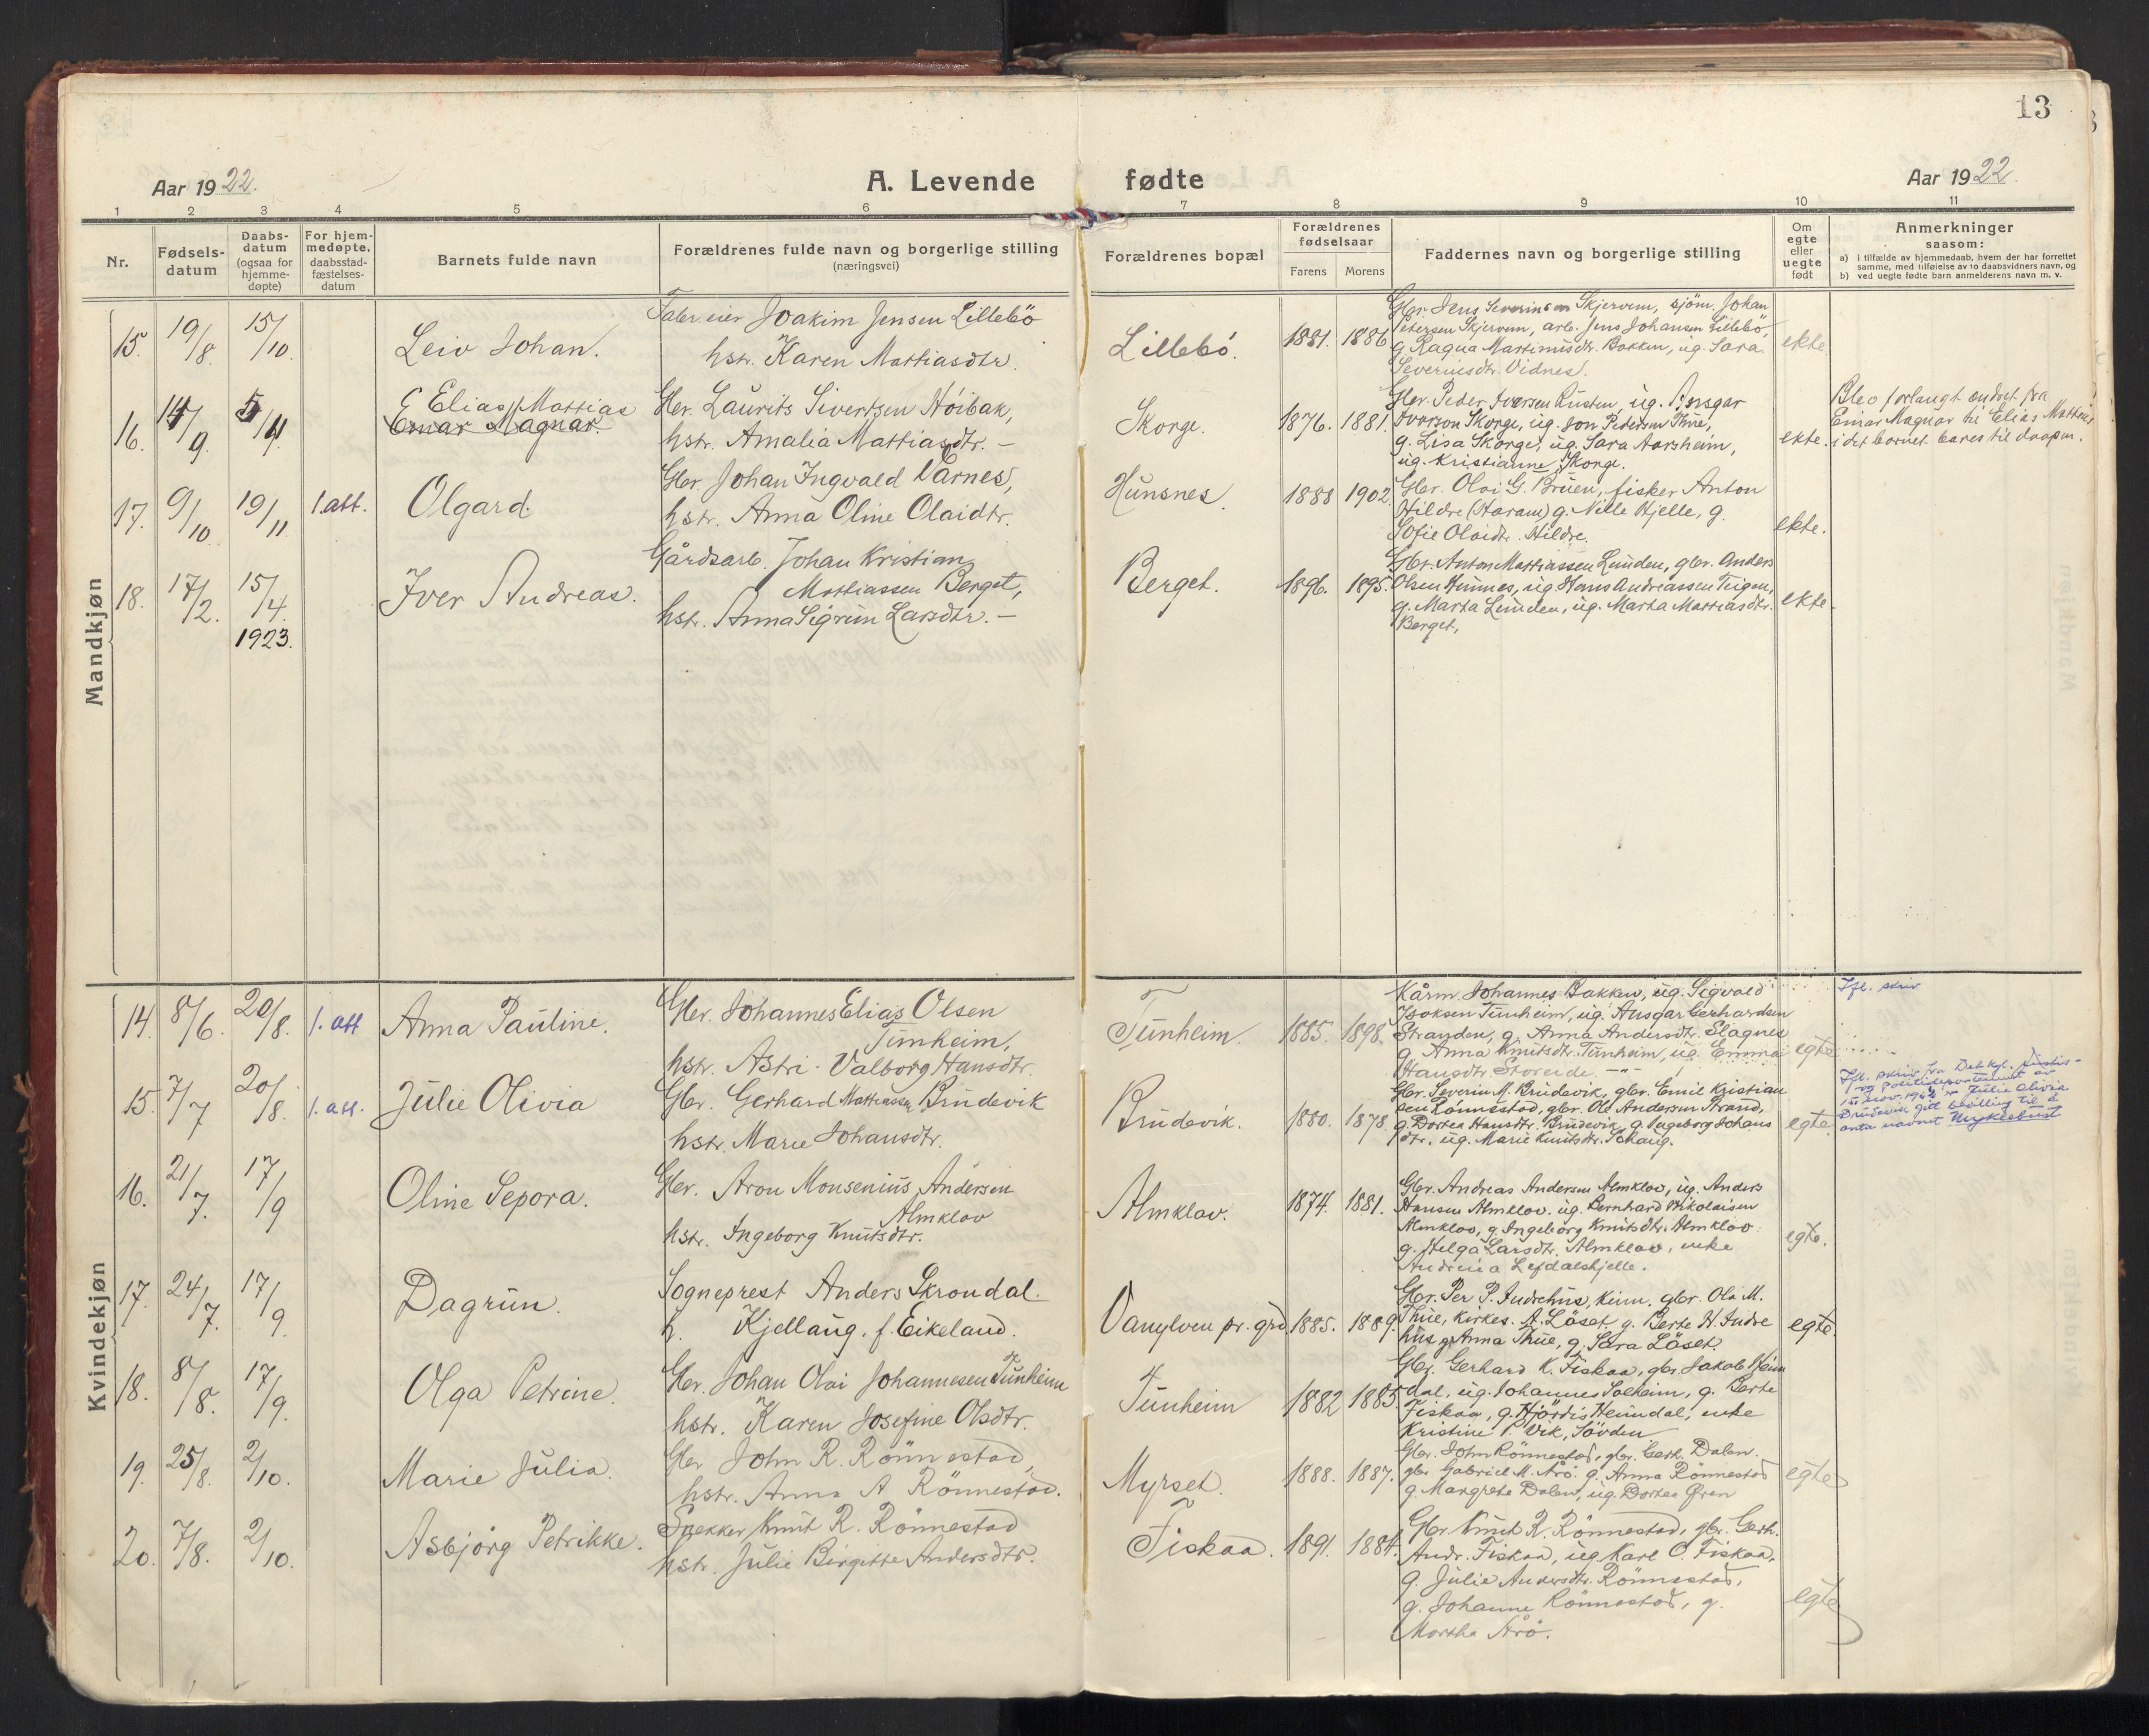 13
Aar 1922.
A. Levende fødte
Aar 1922.
1 2 3 4 5 6 7 8 9 10 11
Nr.
Fødsels-
datum
Daabs-
datum
(ogsaa for
hjemme-
døpte)
For hjem-
medøpte,
daabsstad-
fæstelses-
datum
Barnets fulde navn
Forældrenes fulde navn og borgerlige stilling
(næringsvei)
Forældrenes bopæl
Forældrenes
fødselsaar
Farens Morens
Faddernes navn og borgerlige stilling
Om
egte
eller
uegte
født
Anmerkninger
saasom:
a) i tilfælde av hjemmedaab, hvem der har forrettet
samme, med tilføielse av to daabsvidners navn, og
b) ved uegte fødte barn anmelderens navn m. v.
Mandkjøn
15. 19/8. 15/10. Leiv Johan.
Fabr.eier Joakim Jensen Lillebö
hstr. Karen Mattiasdtr.
Lillebö. 1881. 1886
Gbr. Jens Severinsen Skjervem, sjöm. Johan
Petersen Skjervem, arb. Jens Johansen Lillebö,
g. Ragna Martinusdtr. Bakken, ug. Sara
Severinsdtr. Vidnes.
ekte
16. 14/9. 5/11. Elias Mattias
Einar Magnar.
Gbr. Laurits Sivertsen Höibak,
hstr. Amalia Mattiasdtr. —
Skorge. 1876. 1881.
Gbr. Peder Iversen Rusten, ug. Ansgar
Iverson Skorge, ug. Jon Pedersen Thue,
g. Lisa Skorge, ug. Sara Aarsheim,
ug. Kristianne Skorge.
ekte.
Blev forlangt endret fra
Einar Magnar til Elias Mattias
i det barnet bares til daapen.
17. 9/10. 19/11 1. att. Olgard.
Gbr. Johan Ingvald Varnes,
hstr. Anna Oline Olaidtr.
Hunsnes. 1888 1902.
Gbr. Olai G. Bruen, fisker Anton
Hildre (Haram) g. Nille Hjelle, g.
Sofie Olaidtr. Hildre.
ekte.
18. 17/2. 15/4. 1923. Iver Andreas.
Gårdsarb. Johan Kristian
Mattiassen Berget,
hstr. Anna Sigrun Larsdtr. —
Berget. 1896. 1895.
Gbr. Anton Mattiassen Lunden, gbr. Anders
Olsen Hunnes, ug. Hans Andreassen Teigen,
g. Marta Lunden, ug. Marta Mattiasdtr.
Berget,
ekte.
Kvindekjøn
14. 8/6. 20/8. 1. att Anna Pauline.
Gbr. Johannes Elias Olsen
Tunheim,
hstr. Astri Valborg Hansdtr.
Tunheim. 1885. 1898.
Kårm. Johannes Bakken, ug. Sigvald
Isaksen Tunheim, ug. Ansgar Gerhardsen
Stranden, g. Anna Andersdtr. Slagnes
g. Anna Knutsdtr. Tunheim, ug. Emma
Hansdtr. Storeide. —
egte
Ifl. skriv
15. 7/7 20/8. 1. att. Julie Olivia
Gbr. Gerhard Mattiassen Brudevik
hstr. Marie Johansdtr.
Brudevik. 1880. 1878.
Gbr. Severin M. Brudevik, gbr. Emil Kristian
sen Rönnestad, gbr. Ole Andersen Strand,
g. Dortea Hansdtr. Brudevik, g. Ingeborg Johans
dtr. ug. Marie Knutsdtr. Schaug.
egte
Ifl. skriv fra Det kgl. justis-
og politidepartement av
15. nov. 194 er Julie Olivia
Brudevik gitt bevilling til å
anta navnet Myklebust
16. 21/7. 17/9 Oline Sepora.
Gbr. Aron Monsenius Andersen
Almklov
hstr. Ingeborg Knutsdtr.
Almklov. 1874. 1881.
Gbr. Andreas Andersen Almklov, ug. Anders
Hansen Almklov. ug. Bernhard Nikolaisen
Almklov, g. Ingeborg Knutsdtr. Almklov.
g. Helga Larsdtr. Almklov, enke
Andrina Lefdalshjelle.
egte.
17. 24/7. 17/9. Dagrun.
Sogneprest Anders Skrondal.
h. Kjellaug. f. Eikeland.
Vanylven pr. grd. 1885. 1889.
Gbr. Per P. Indrehus, Kinn. gbr. Ola M.
Thue, Kirkes. A. Löset, g. Berte H. Indre
hus, g. Anna Thue, g. Sara Löset.
egte.
18. 8/8. 17/9. Olga Petrine.
Gbr. Johan Olai Johannesen Tunheim
hstr. Karen Josefine Olsdtr.
Tunheim 1882 1885
Gbr. Gerhard K. Fiskaa, gbr. Jakob Heim
dal, ug. Johannes Solheim, g. Berte
Fiskaa, g. Hjördis Heimdal, enke
Kristine P. Vik, Sövden
19. 25/8. 2/10. Marie Julia.
Gbr John R. Rönnestad,
hstr. Anna A Rönnestad.
Myrset. 1888. 1887.
Gbr. John Rönnestad, gbr. Gerh. Dalen.
gbr Gabriel M. Årö. g. Anna Rönnestad
g. Margrete Dalen, ug. Dortea Ören
egte
20. 7/8. 2/10. Asbjörg Petrikke.
Snekker Knut R. Rönnestad
hstr. Julie Birgitte Andersdtr.
Fiskaa. 1891. 1884.
Gbr Knut R. Rönnestad, gbr. Gerh.
Andr. Fiskaa, ug Karl O. Fiskaa,
g. Julie Andersdtr. Rönnestad,
g. Johanne Rönnestad, g.
Martha Årö.
egte